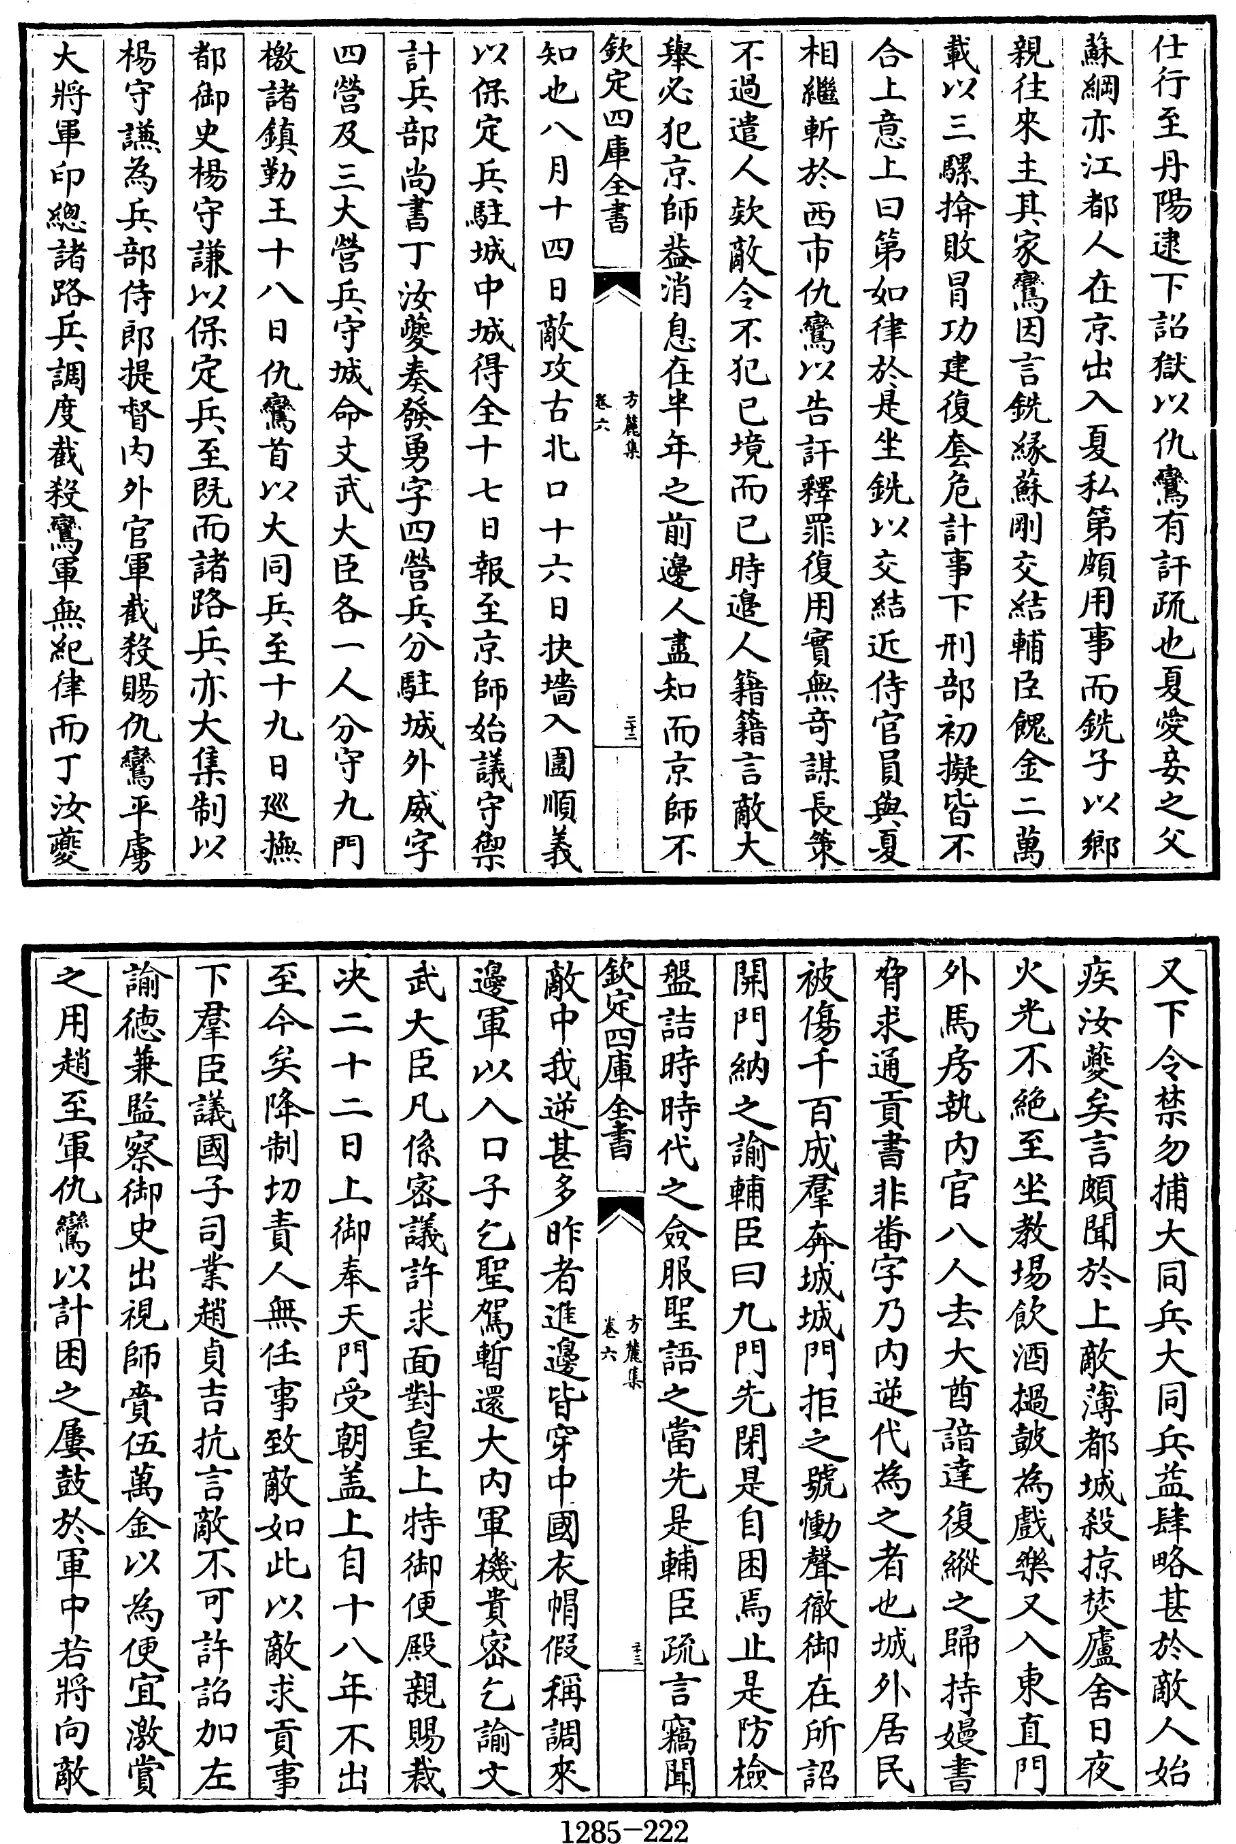 仕行至丹陽逮下詔獄以仇鸞有訐疏也夏愛妾之父
蘇綱亦江都人在京出入夏私第頗用事而銑子以鄉
親往來主其家鸞因言銑緣蘇剛交結輔臣餽金二萬
載以三騾揜敗冒功建復套危計事下刑部初擬皆不
合上意上曰第如律於是坐銑以交結近侍官員與夏
相繼斬於西市仇鸞以告訐釋罪復用實無奇謀長策
不過遣人欵敵令不犯已境而已時邉人籍籍言敵大
舉必犯京師葢消息在半年之前邊人盡知而京師不
欽定四庫全書
方麓集
卷六
二十二
知也八月十四日敵攻古北口十六日抉墻入圍順義
以保定兵駐城中城得全十七日報至京師始議守禦
計兵部尚書丁汝夔奏發勇字四營兵分駐城外威字
四營及三大營兵守城命文武大臣各一人分守九門
檄諸鎮勤王十八日仇鸞首以大同兵至十九日廵撫
都御史楊守謙以保定兵至既而諸路兵亦大集制以
楊守謙為兵部侍郎提督内外官軍截殺賜仇鸞平虜
大將軍印總諸路兵調度截殺鸞軍無紀律而丁汝夔
又下令禁勿捕大同兵大同兵益肆略甚於敵人始
疾汝夔矣言頗聞於上敵薄都城殺掠焚廬舍日夜
火光不絶至坐教場飲酒撾鼓為戲樂又入東直門
外馬房執内官八人去大酋諳達復縱之歸持嫚書
脅求通貢書非畨字乃内逆代為之者也城外居民
被傷千百成羣奔城城門拒之號慟聲徹御在所詔
開門納之諭輔臣曰九門先閉是自困焉止是防檢
盤詰時時代之僉服聖語之當先是輔臣疏言竊聞
欽定四庫全書
方麓集
卷六
二十三
敵中我逆甚多昨者進邊皆穿中國衣帽假稱調來
邊軍以入口子乞聖駕暫還大内軍機貴宻乞諭文
武大臣凡係宻議許求面對皇上特御便殿親賜裁
决二十二日上御奉天門受朝盖上自十八年不出
至今矣降制切責人無任事致敵如此以敵求貢事
下羣臣議國子司業趙貞吉抗言敵不可許詔加左
諭德兼監察御史出視師賫伍萬金以為便宜激賞
之用趙至軍仇鸞以計困之屢鼓於軍中若將向敵
1285-222